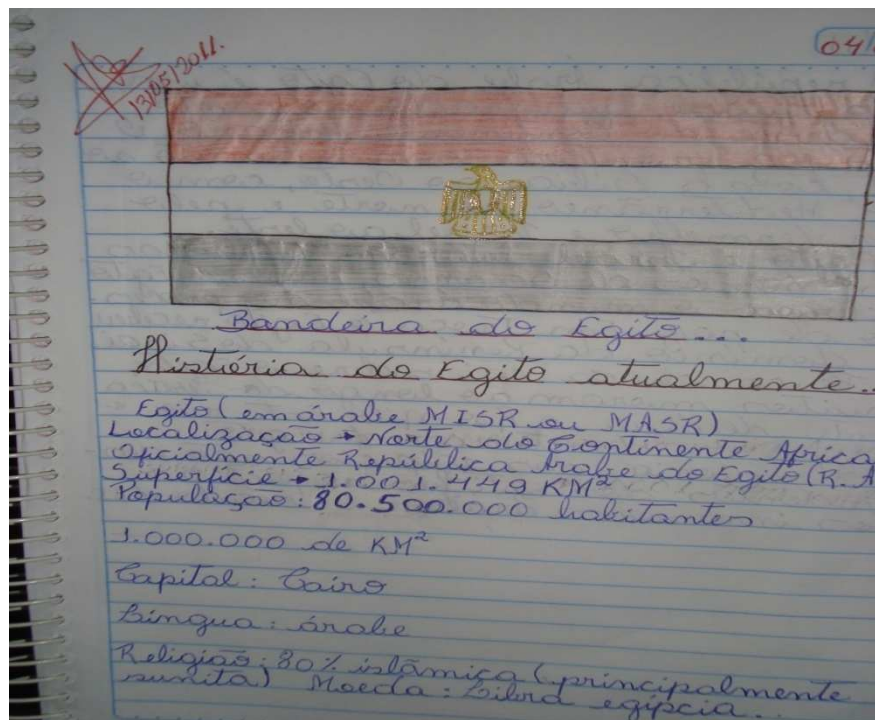 04
13/05/2011.
Bandeira do Egito...
História do Egito atualmente..
Egito (em árabe MISR ou MASR)
Localização → Norte do Continente Africa
Oficialmente República Arabe do Egito (R. A
Superfície → 1.001.449 KM²
População: 80.500.000 habitantes
1.000.000 de KM²
Capital: Cairo
Língua: árabe
Religião: 80% islâmica (principalmente
sunita) Moeda: Libra egípcia...